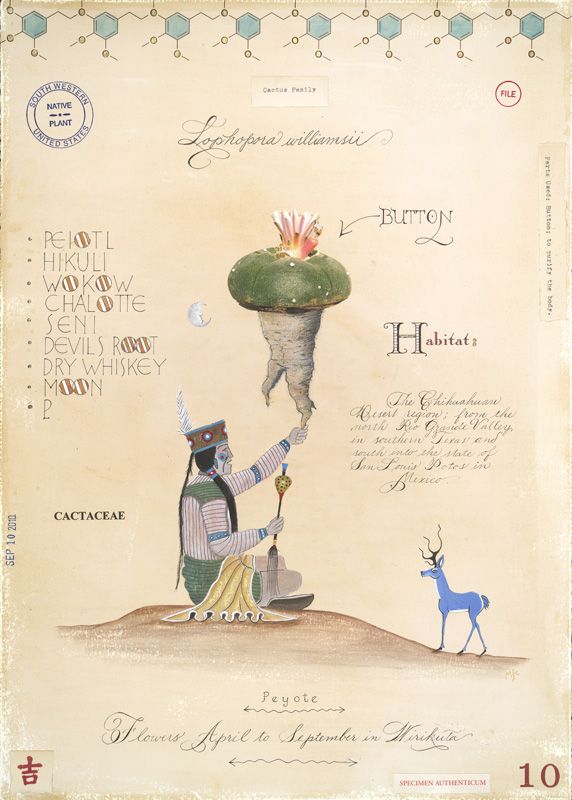 SOUTH WESTERN
NATIVE
PLANT
UNITED STATES
Cactus Family
FILE
Lophopora williamsii
BUTTON
Parts Used: Button; to purify the body.
PEIOTL
HIKULI
WOKOW
CHALOTTE
SENI
DEVILS ROOT
DRY WHISKEY
MOON
P
Habitat:
The Chihuahuan
Desert region; from the
north Rio Grande Valley,
in southern Texas and
south into the state of
San Louis Potos in
Mexico.
CACTACEAE
SEP 10 2010
Peyote
Flowers April to September in Wirikuta
吉
SPECIMEN AUTHENTICUM
10